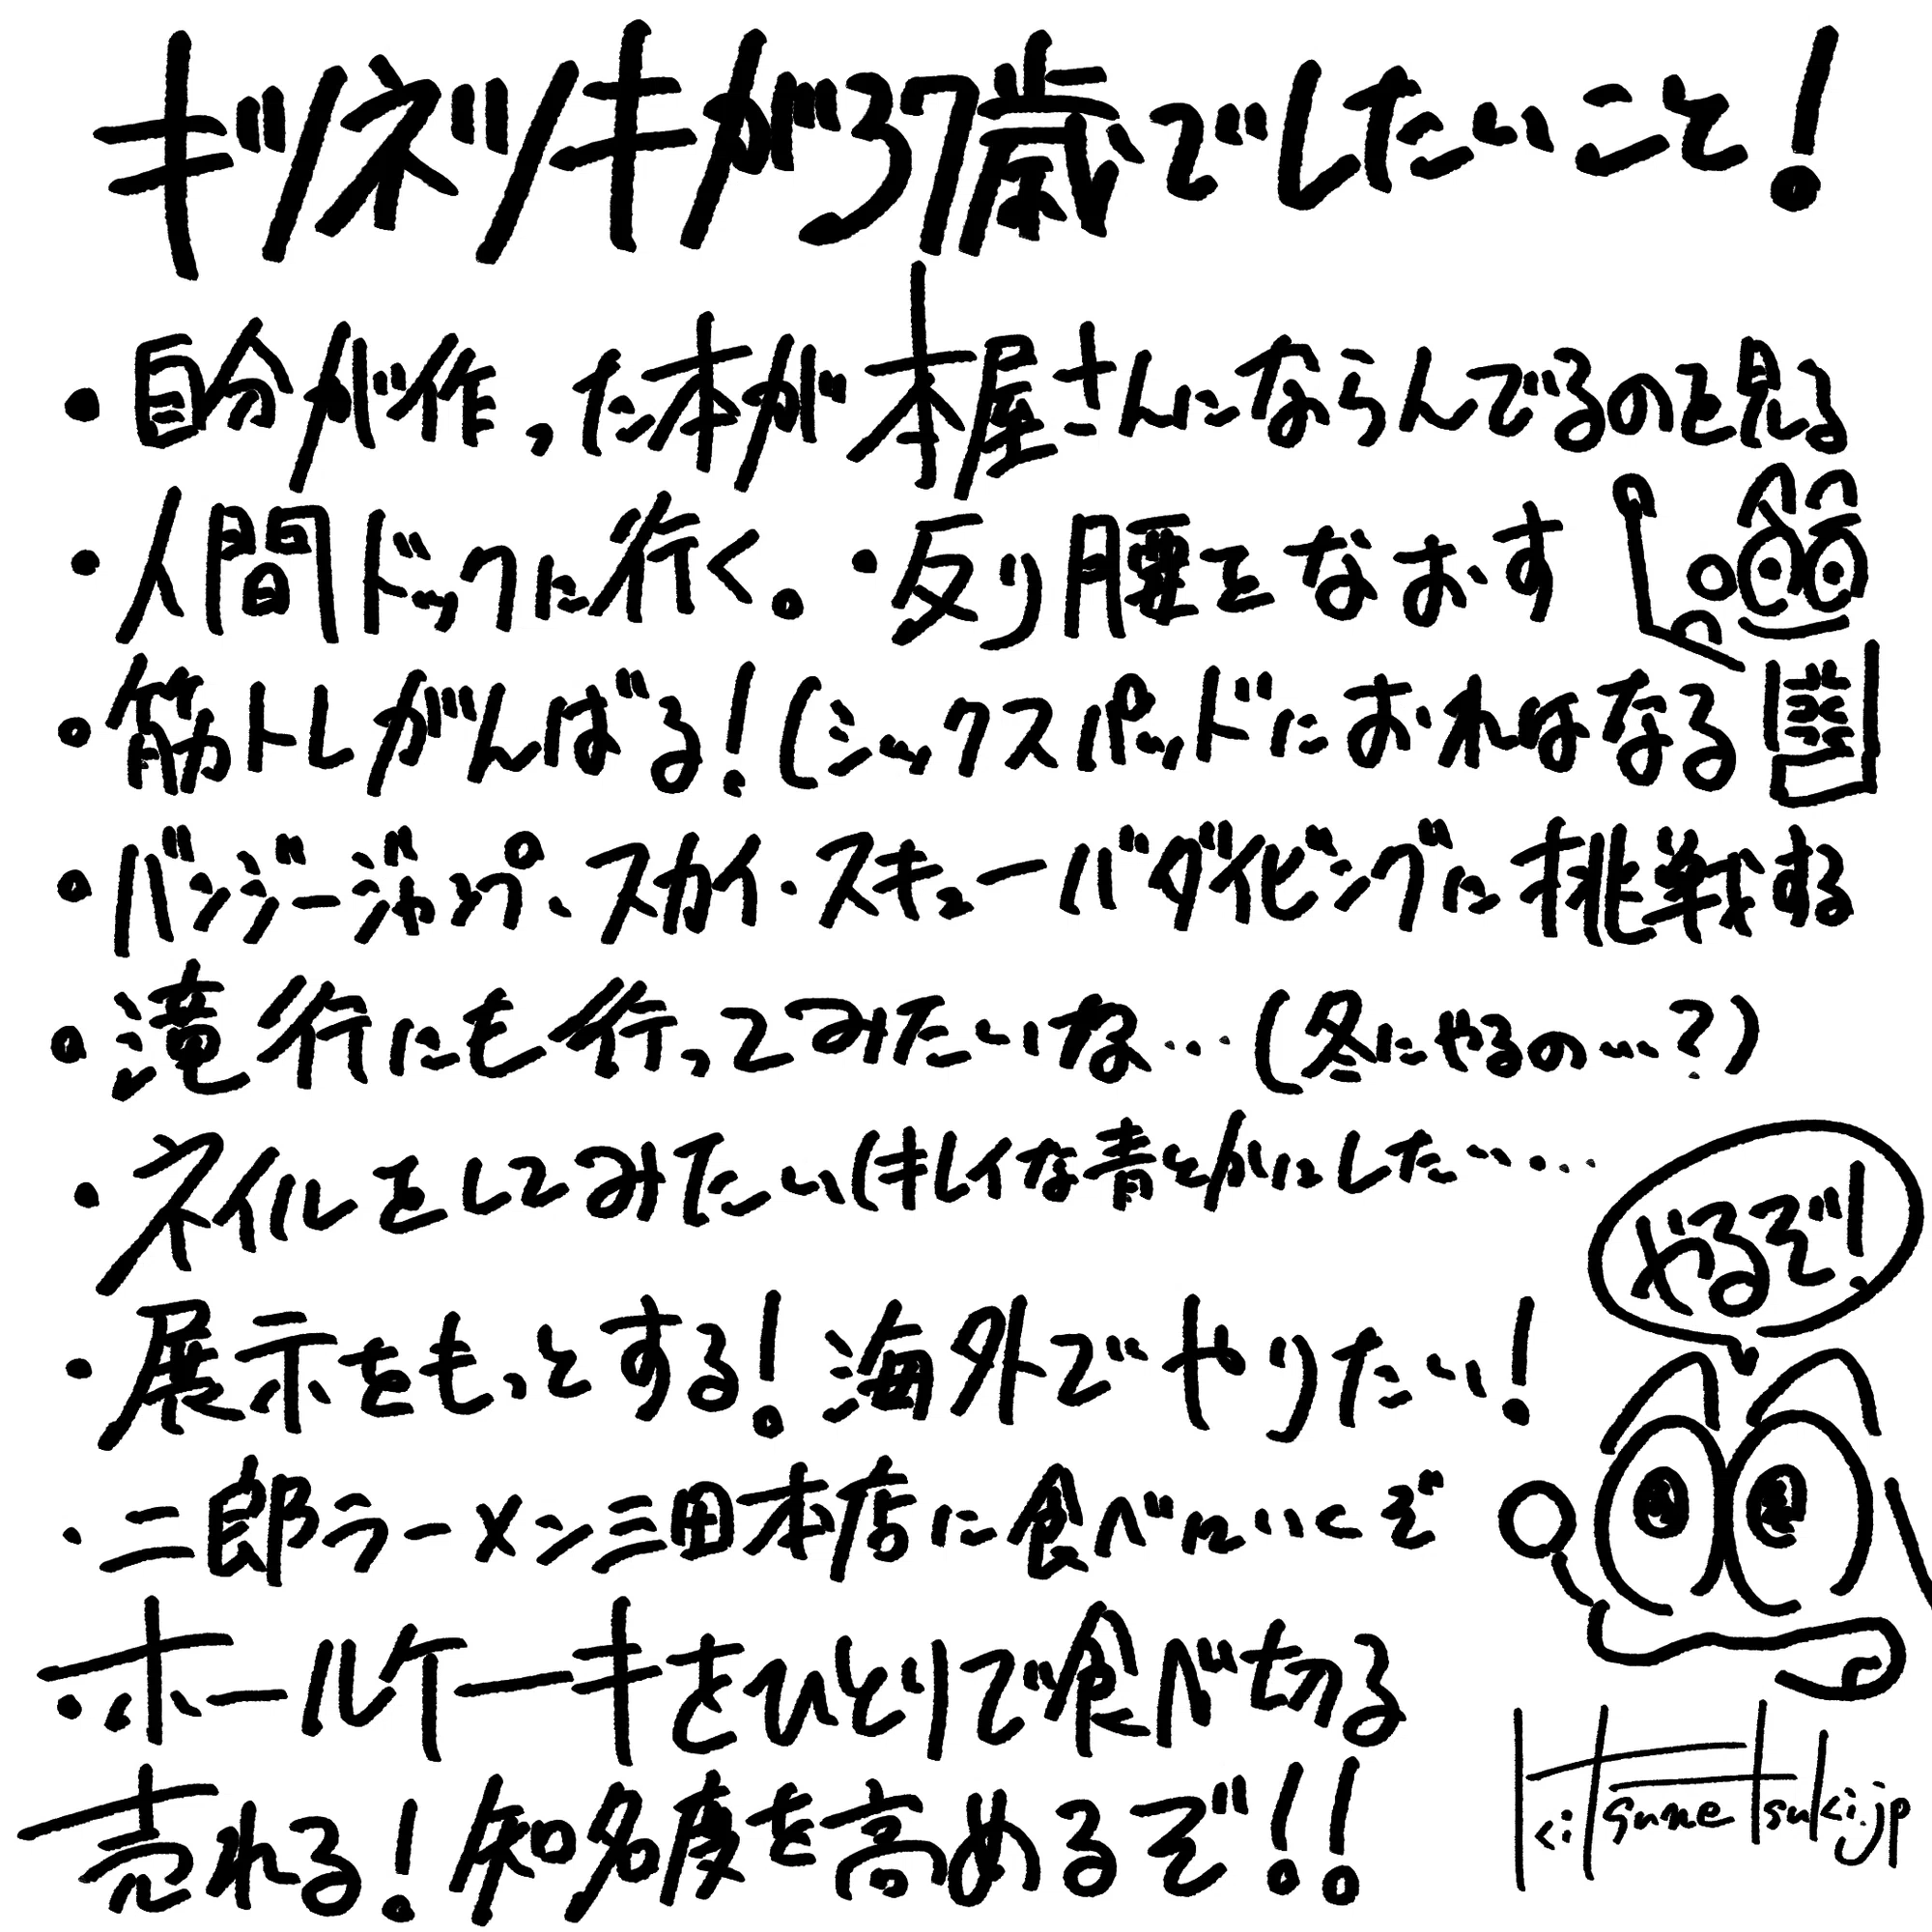 ギツネツキが37歳でしたいこと!
・自分が作った本が本屋さんにならんでるのを見る
・人間ドックに行く。・反り腰をなおす
・筋トレがんばる!(シックスパッドにおれはなる
・バンジージャンプ、スカイ・スキューバダイビングに挑戦する
・滝行にも行ってみたいな…(冬にやるの…?)
・ネイルをしてみたい(キレイな青とかにした……
やるぞ!
・展示をもっとする!海外でやりたい!
・二郎ラーメン三田本店に食べにいくぞ
・ホールケーキをひとりで食べきる
売れる!知名度を高めるぞ!!
kitsunetsuki.jp